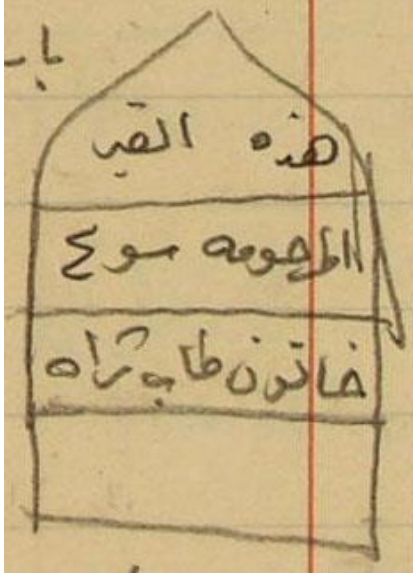 هذه القبر
المرحومه سونج
خاتون طاب ثراه